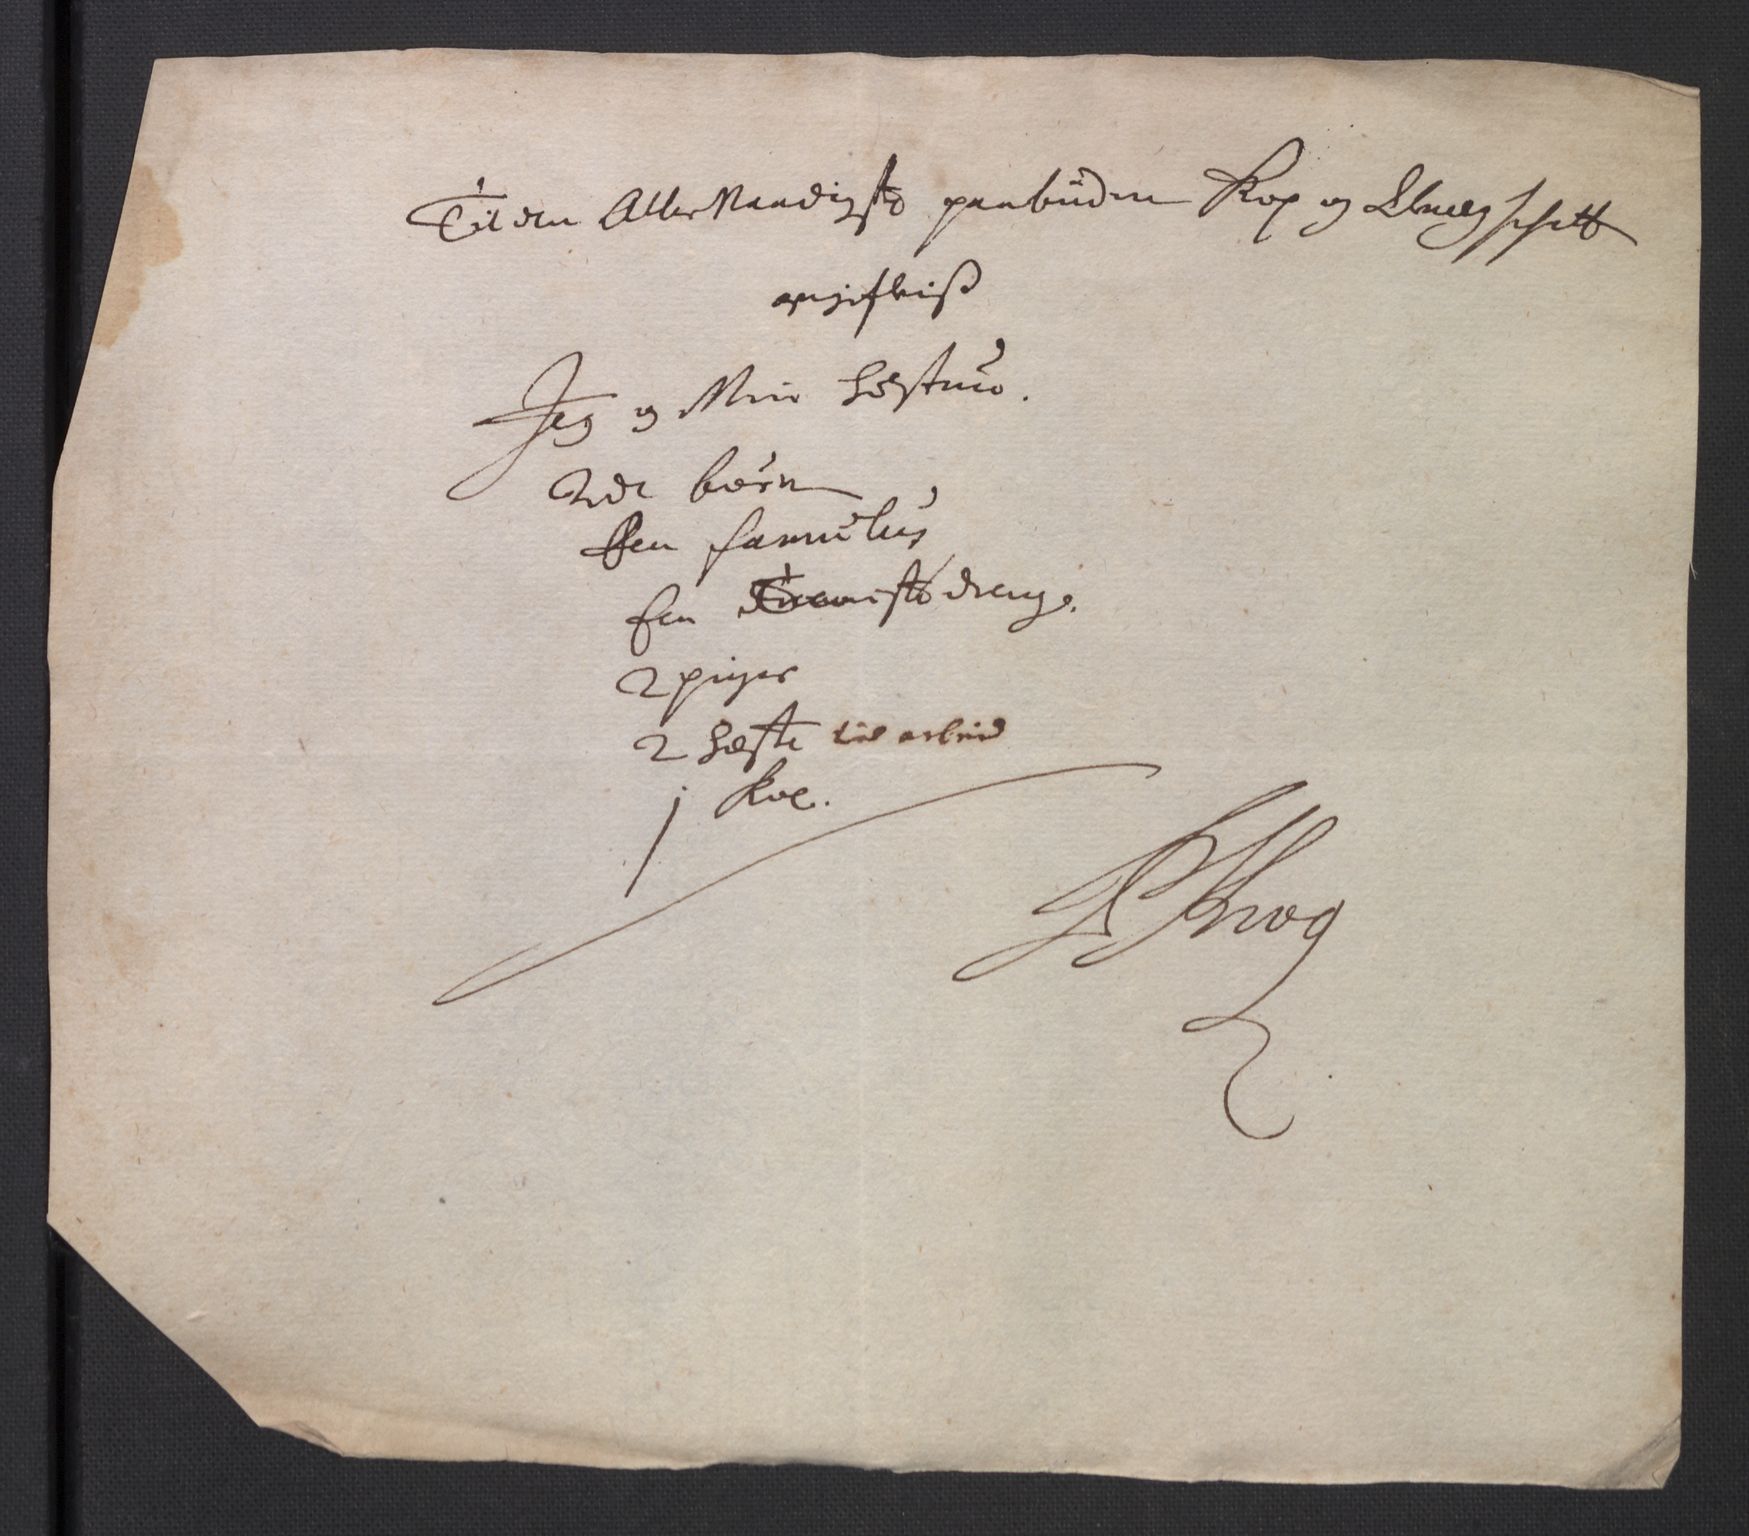 Til den Aller Naadigste paabudne Kop og qvægschatt
angifvis
Jeg og Min Høstrue.
2de børn
Een famulus
Een tieneste drenge.
2 piger
2 Hæste til arbeid
j Koe.
Krog